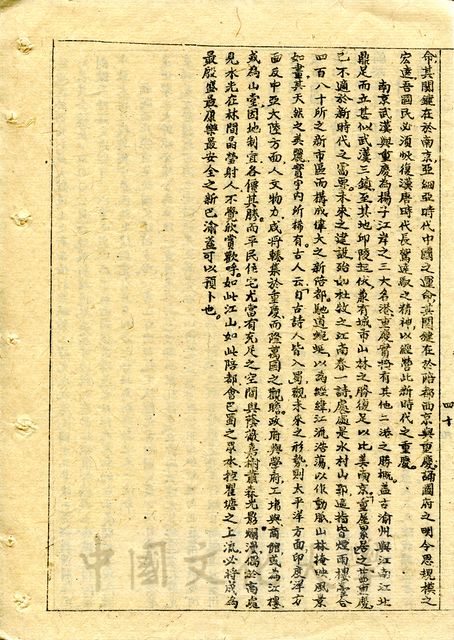 命，其關鍵在於南京，亞細亞時代中國之運命，其關鍵在於陪都西京與重慶。誦國府之明令，思規模之
宏遠，吾國民必須恢復漢唐時代長駕遠馭之精神，以經營此新時代之重慶。
南京武漢與重慶為揚子江岸之三大名港，重慶實將有其他二港之勝概，蓋古渝州與江南江北
鼎足而立，甚似武漢三鎮，至其地邱陵起伏，兼有城市山林之勝，復足以比美南京。重屋累居之舊重慶
已不適於新時代之需要，未來之建設，殆如杜牧之江南春一詩，處處是水村山郭，遙指皆煙雨樓臺，合
四百八十所之新市區而構成偉大之新陪都，馳道蜿蜒，以為經緯，江流浩蕩，以作動脈，山林掩映，風景
如畫，其天然之美麗，實宇內所稀有。古人云，自古詩人皆入蜀，觀未來之形勢，則太平洋方面，印度洋方
面及中亞大陸方面，人文物力，咸將輳集於重慶，而隆萬國之觀瞻。政府與學府，工場與商館，或為江樓
或為山堂，因地制宜，各儘其勝，而平民住宅，尤當有充足之空間與蔭蔽，嘉樹叢春，光影爛漫，偶於高處
見水光在林間晶瑩射人，不覺欣賞歡呼，如此江山，如此陪都，會巴蜀之眾水，控瞿塘之上流，必將成為
最殷盛最康樂最安全之新巴渝，蓋可以預卜也。
四十
中國文